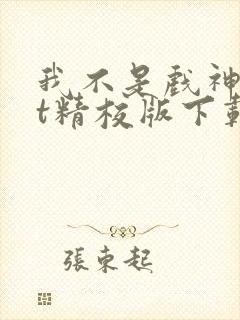 我不是戏神
t精校版下载
張東起